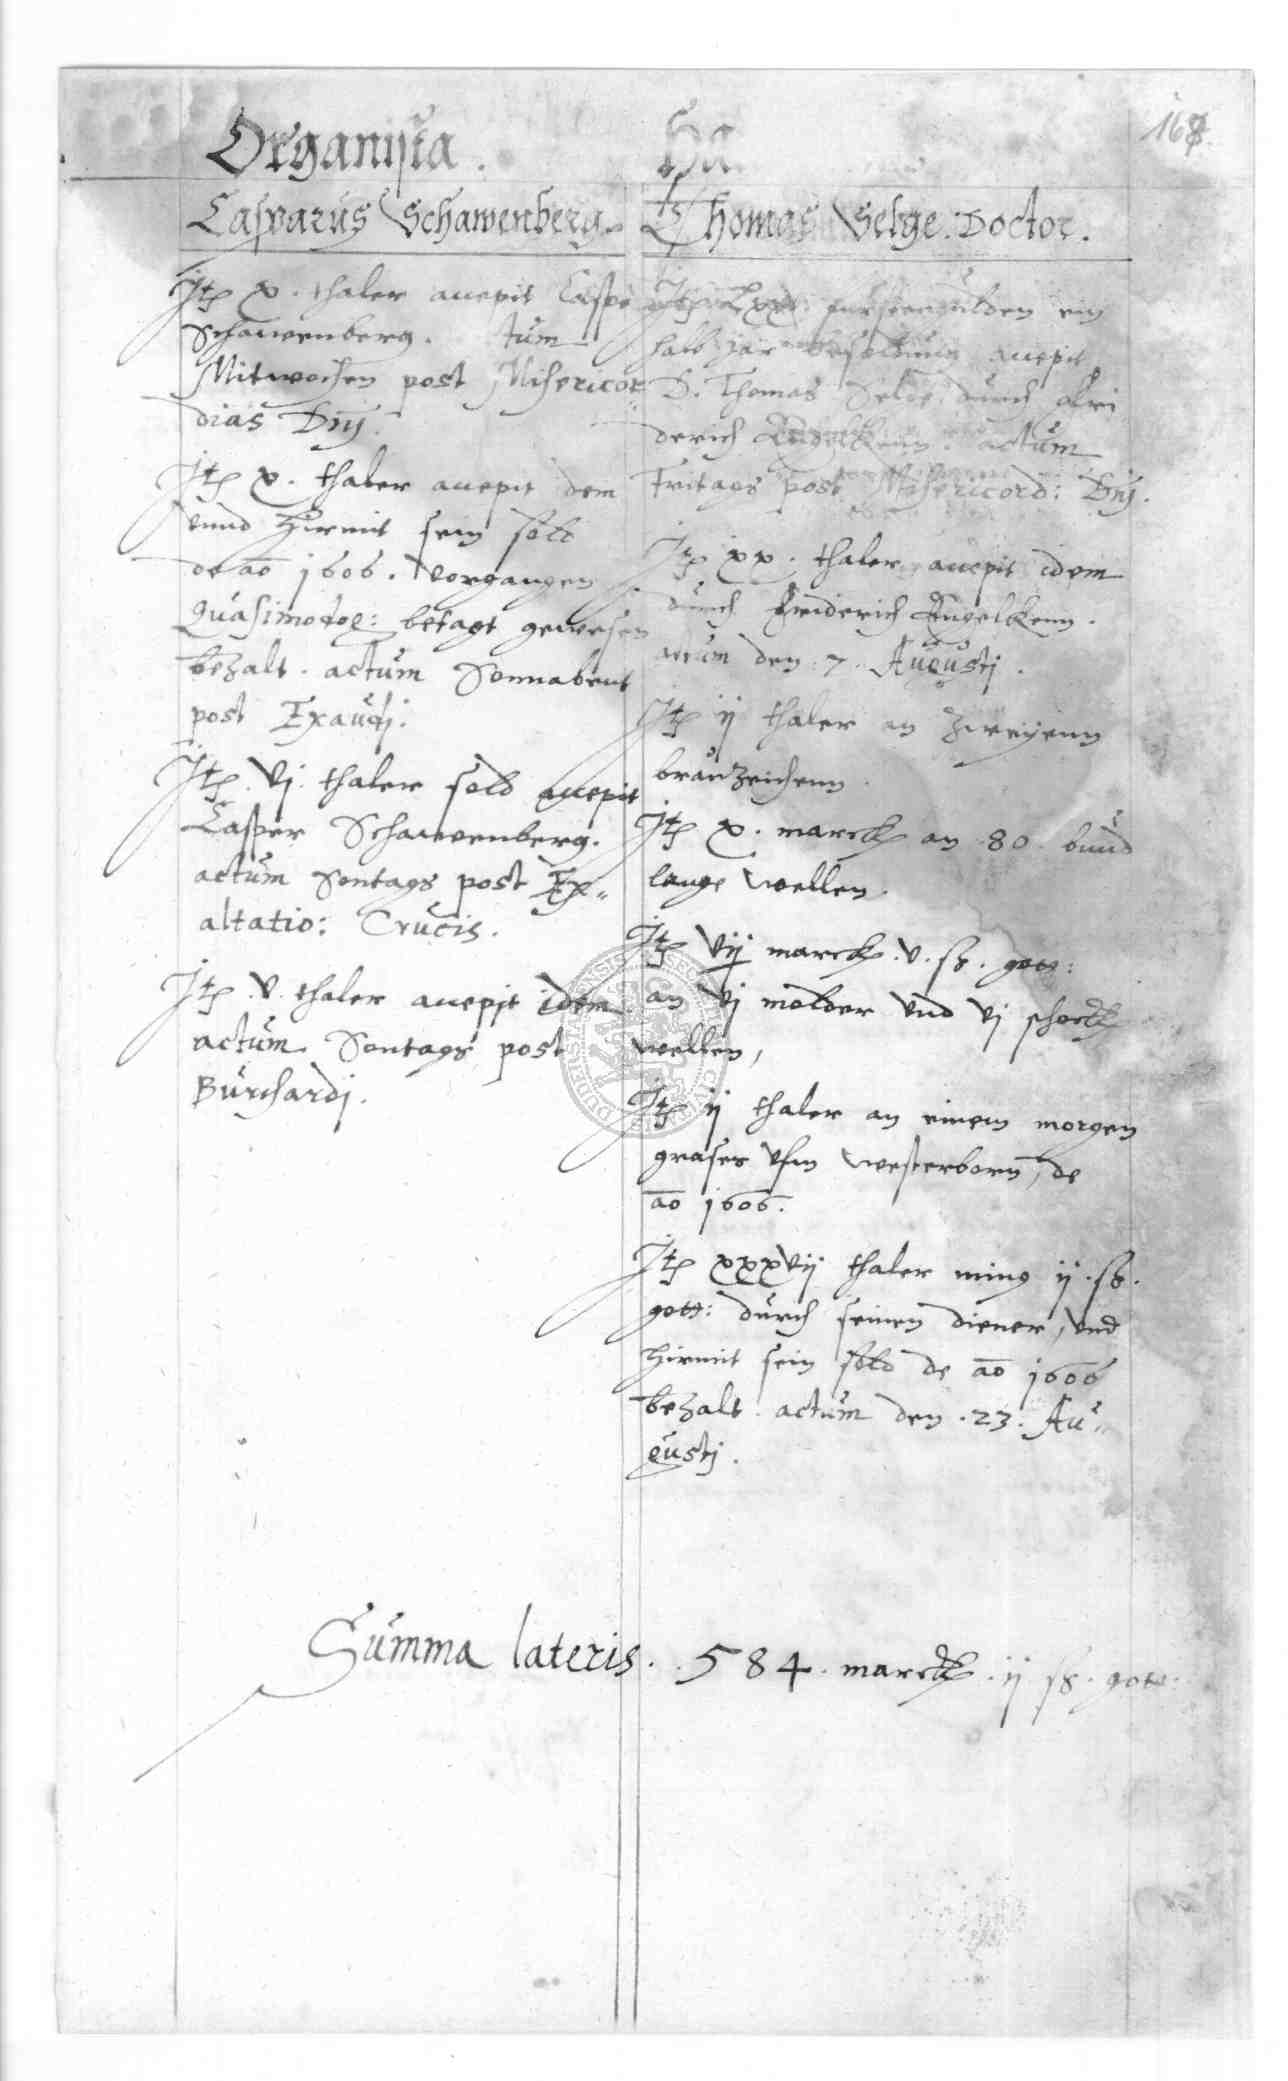 168.
Organista.
Casparus Schawenberg.
Jtem x. thaler accepit Casper
Schauenberg. tum
Mitwochen post Misericor
dias Dnj.
Jtem x. thaler accepit idem
vnnd hirmit sein sold
de ao 1606. vorgangen
Quasimodog: betagt gewesen
bezalt. actum Sonnabent
post Exaudj.
Jtem vj. thaler sold accepit
Casper Schauenberg.
actum Sontags post Ex„
altatio: Crucis.
Jtem v. thaler accepit idem
actum Sontags post
Burchardj.
Thomas Selge. Doctor.
Jtem fürstengulden ein
halb jar besoldung accepit
D. Thomas Selge durch Fri
derich Engelkenn. actum
Fritags post Misericord: Dnj.
Jtem xx. thaler accepit idem
durch Friderich Engelkenn.
actum den 7. Augustj.
Jtem ij thaler an zweyenn
brauzeichenn.
Jtem x. marck an 80. bund
lange wellen.
Jtem vij marck. v. ß. gott:
an vj molder vnd vj schock
wellen,
Jtem ij thaler an einem morgen
grases vfm westerborn, de
ao 1606.
Jtem xxxvij thaler ming ij. ß.
gott: durch seinen diener, vnd
hirmit sein sold de ao 1606
bezalt. actum den .23. Au„
gustj.
Summa lateris. 584. marck. ij ß. gott: